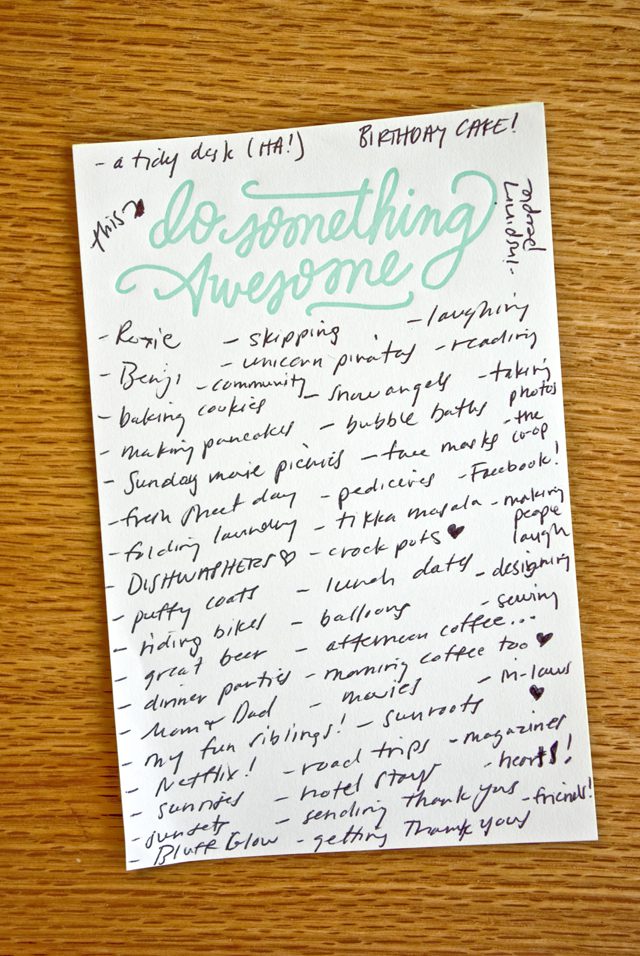 - a tidy desk (HA!) BIRTHDAY CAKE!
this
do something
Awesome
- inspiring people
- Roxie - skipping - laughing
- Benji - unicorn piñatas - reading
- community
- baking cookies - snow angels - taking photos
- making pancakes - bubble baths - the co-op
- Sunday movie picnics - face masks
- fresh sheet day - pedicures - Facebook!
- folding laundry - tikka masala - making people laugh
- DISHWASHERS ♡ - crock pots ♥
- puffy coats - lunch dates - designing
- riding bikes - balloons - sewing
- great beer - afternoon coffee...
- dinner parties - morning coffee too ♥
- Mom & Dad - movies - in-laws ♥
- my fun siblings! - sunroofs
- Netflix! - road trips - magazines
- sunrises - hotel stays - hearts!
- sunsets - sending thank yous - friends!
- Bluff Glow - getting thank yous